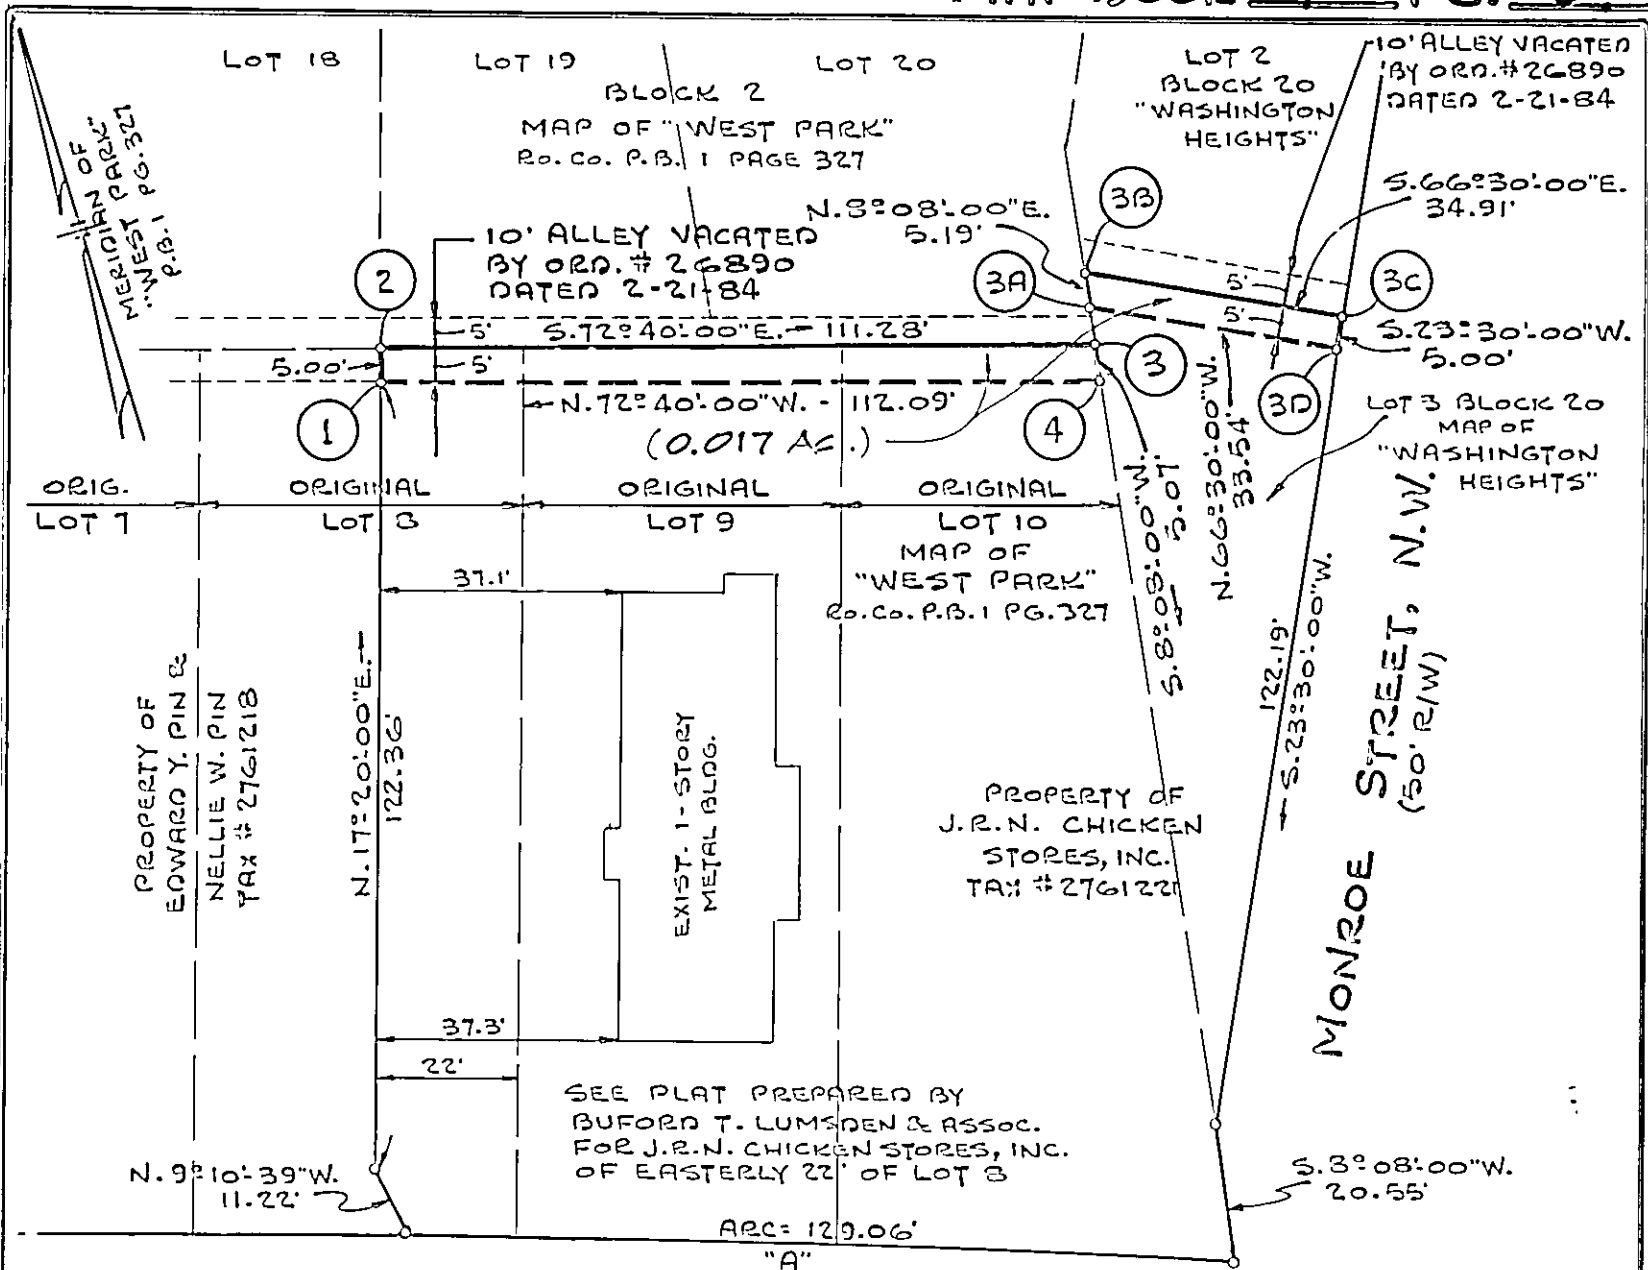 LOT 18
LOT 19
LOT 20
BLOCK 2
MAP OF "WEST PARK"
Ro. Co. P.B. 1 PAGE 327
LOT 2
BLOCK 20
"WASHINGTON
HEIGHTS"
10' ALLEY VACATED
BY ORD. #26890
DATED 2-21-84
MERIDIAN OF
"WEST PARK"
P.B. 1 PG. 327
10' ALLEY VACATED
BY ORD. # 26890
DATED 2-21-84
N.8°08'00"E.
5.19'
3B
S.66°30'00"E.
34.91'
2
3A
3C
5'
5'
5'
5'
S.72°40'00"E. - 111.28'
S.23°30'00"W.
5.00'
5.00'
3
3D
N.72°40'00"W. - 112.09'
(0.017 Ac.)
1
4
S.8°08'00"W.
5.07'
N.66°30'00"W.
33.54'
LOT 3 BLOCK 20
MAP OF
"WASHINGTON
HEIGHTS"
ORIG.
LOT 7
ORIGINAL
LOT 8
ORIGINAL
LOT 9
ORIGINAL
LOT 10
MAP OF
"WEST PARK"
Ro. Co. P.B. 1 PG. 327
37.1'
PROPERTY OF
EDWARD Y. PIN &
NELLIE W. PIN
TAX # 2761218
N.17°20'00"E.
122.36'
EXIST. 1-STORY
METAL BLDG.
PROPERTY OF
J.R.N. CHICKEN
STORES, INC.
TAX # 2761221
122.19'
S.23°30'00"W.
MONROE STREET, N.W.
(50' R/W)
37.3'
22'
SEE PLAT PREPARED BY
BUFORD T. LUMSDEN & ASSOC.
FOR J.R.N. CHICKEN STORES, INC.
OF EASTERLY 22' OF LOT 8
N.9°10'39"W.
11.22'
S.8°08'00"W.
20.55'
ARC= 129.06'
"A"